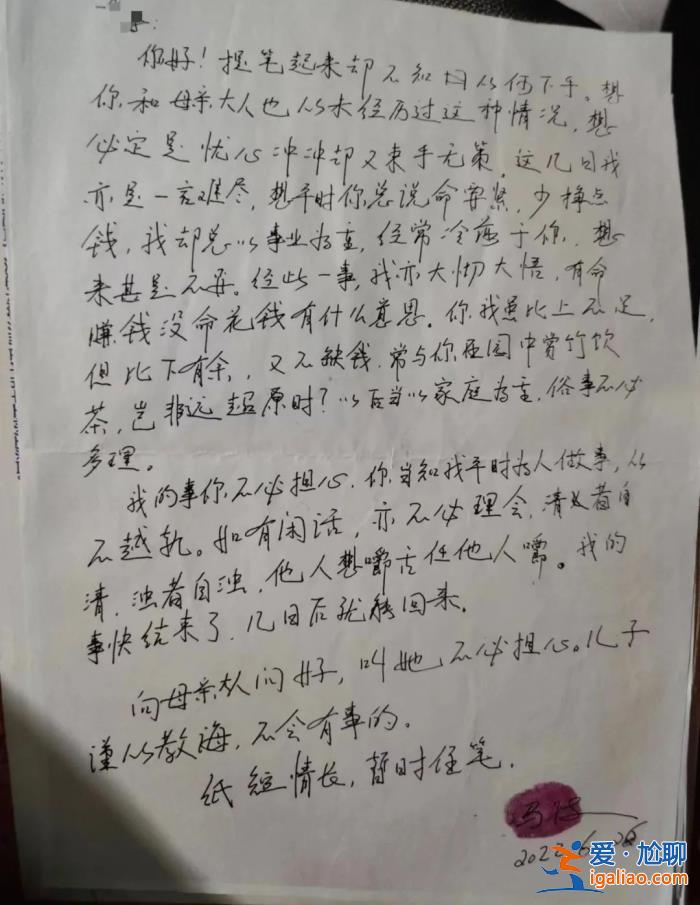 你好！提笔起来却不知从何下手。想
你和母亲大人也从未经历过这种情况，想
必定是忧心冲冲却又束手无策。这几日我
亦是一言难尽，想平时你总说命要紧，少挣点
钱，我却总以事业为重，经常冷落于你，想
来甚是不再。经此一事，我亦大彻大悟，有命
赚钱没命花钱有什么意思。你我虽比上不足，
但比下有余，又不缺钱，常与你园中赏竹饮
茶，岂非远超原时？以后当以家庭为重，俗事不必
多理。
我的事你不必担心，你当知我平时为人做事，从
不越轨。如有闲话，亦不必理会，清者自
清，浊者自浊，他人想嚼舌任他人嚼。我的
事快结束了，几日后就能回来。
向母亲大人问好，叫她不必担心。儿子
谨从教诲，不会有事的。
纸短情长，暂时住笔。
2022.6.26
爱·尬聊
igaliao.com